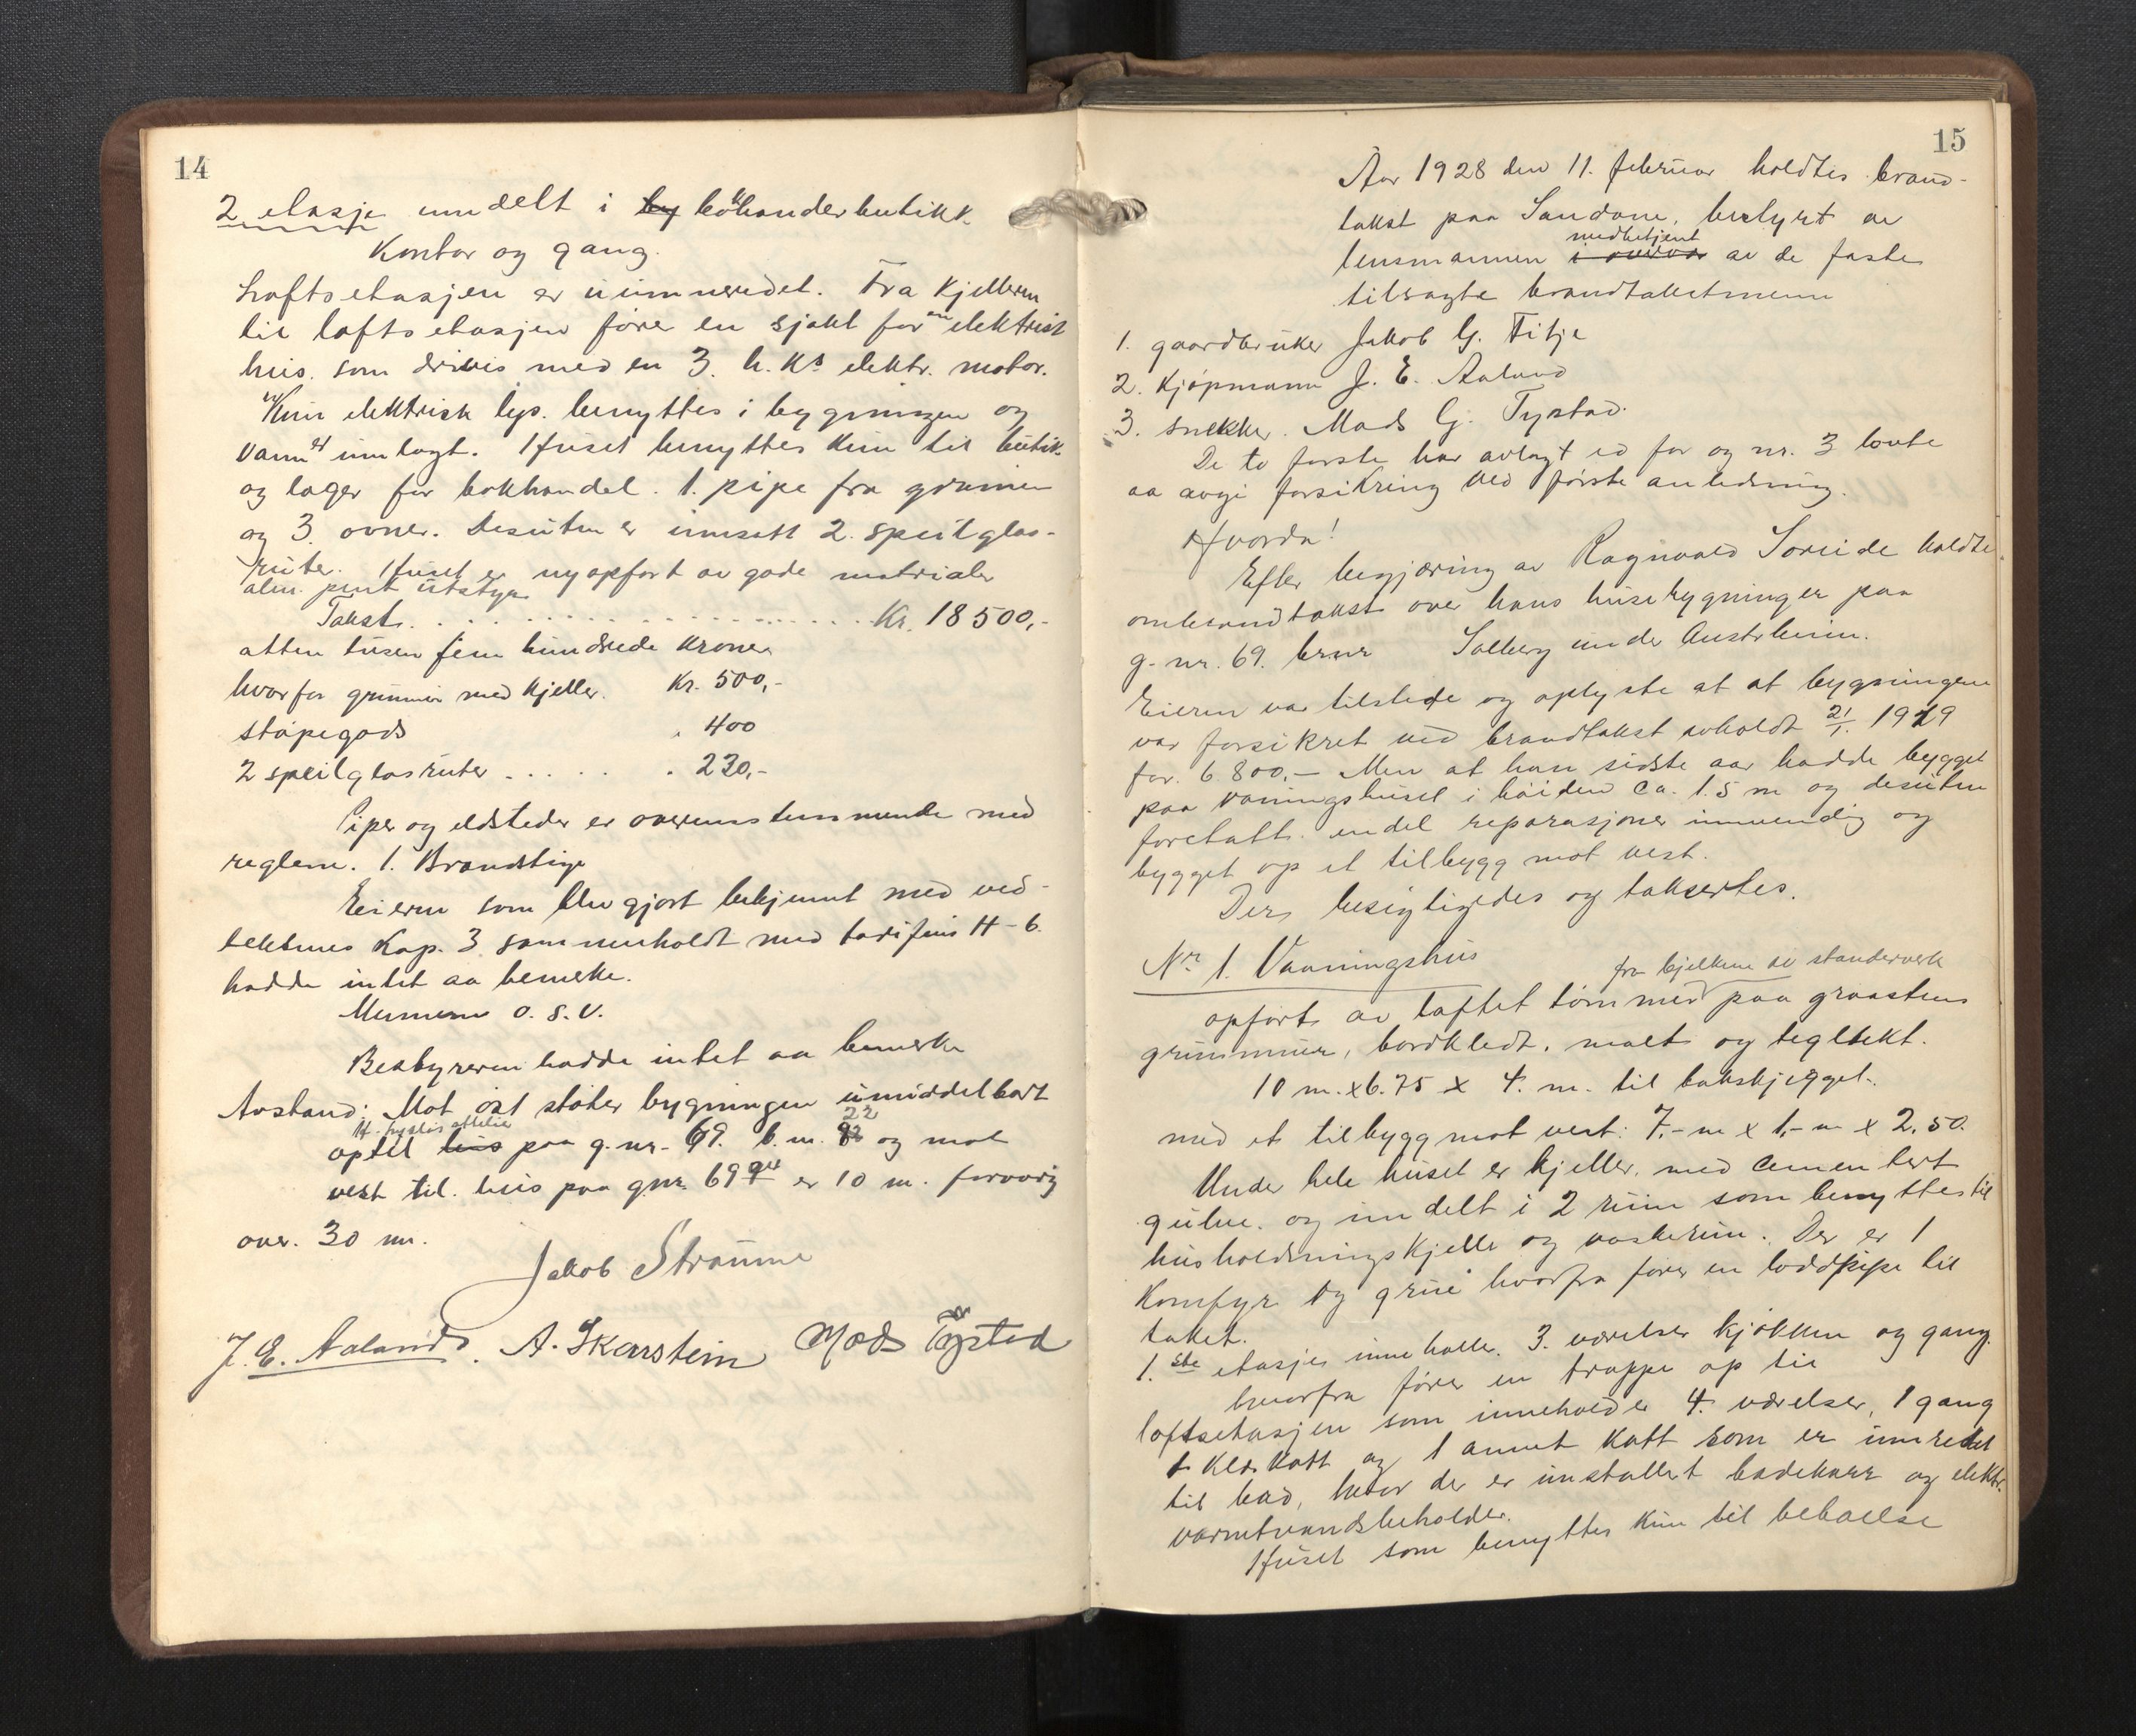 14
2 etasje inndelt i by bokhanderbutikk
Kontor og gang.
Loftsetasjen er uinnredet. Fra kjelleren
til loftsetasjen fører en sjakt for en elektrisk
heis. som drives med en 3. h. Ks elektr. motor.
Kun elektrisk lys. benyttes i bygningen og
vann er innlagt. Huset benyttes kun til butik
og lager for bokhandel. 1. pipe fra grunnen
og 3. ovner. Desuten er innsatt 2. speilglas-
ruter. Huset er nyopført av gode materialer
alm. pent utstyr
Takst. . . . . . . . . . . . Kr. 18500,-
atten tusen fem hundrede kroner
hvorfor grunnmur med kjeller. Kr. 500,-
støpegods " 400
2 speilglasruter . . . . . " 230,-
Piper og ildsteder er overensstemmende med
reglene. 1. Brandstige
Eieren som blev gjort bekjennt med ved-
tektenes Kap. 3 sammenholdt med tarifens H-6.
hadde intet aa bemerke.
Mennene o. s. v.
Bestyreren hadde intet aa bemerke
Avstand: Mot øst støter bygningen umiddelbart
optil hus paa g. nr. 69. b. nr. 22 og mot
vest til. hus paa gnr. 69 er 10 m. forøvrig
over. 30 m.
Jakob Straume
J. E. Aaland. A. Skarstein Mads Tystad
15
Aar 1928 den 11. februar holdtes brand-
takst paa Sandane, bestyrt av
medbetjent
lensmannen i overvær av de faste
tilsagte brandtakstmenn
1. gaardbruker Jakob G. Fitje
2. Kjøpmann J. E. Aaland
3. snekker. Mads G. Tystad.
De to første har avlagt ed før og nr. 3 lovte
aa avgi forsikring ved første anledning.
Hvorda!
Efter begjæring av Ragnvald Søreide holdtes
ombrandtakst over hans husebygninger paa
g. nr. 69. brnr Solberg under Austrheim.
Eieren var tilstede og oplyste at at bygningene
var forsikret ved brandtakst avholdt 21/1. 1919
for. 6.800,- Men at han sidste aar hadde bygget
paa vaaningshuset i høiden ca. 1.5 m og desuten
foretatt. endel reparasjoner innvendig og
bygget op et tilbygg mot vest.
Ders besigtigedes og takseertes.
Nr 1. Vaaningshus
fra bjelkene av standerverk
opført av laftet tømmer paa graastens
grunnmur, bordkledt, malt og tegltekt.
10 m. x 6.75 x 4. m. til takskjegget.
med et tilbygg mot vest: 7,- m x 1,- m x 2,50.
Under hele huset er kjeller. med cementert
gulve. og inndelt i 2 rum som benyttes til
husholdningskjeller og vaskerum. Der er 1
Komfyr og grue hvorfra fører en loddpipe til
taket.
1. ste etasje inneholder. 3. værelser kjøkken og gang.
hvorfra fører en trappe op til
loftsetasjen som inneholder 4. værelser, 1 gang
1 klæskott og 1 annet kott som er innredet
til bad, hvor der er installert badekarr og elektr.
varmtvandsbeholder.
Huset som benyttes kun til beboelse